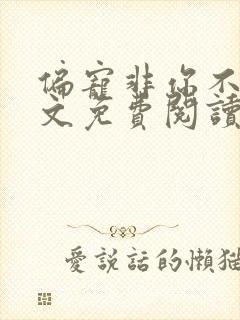 偏寵非你不
文免費閱讀
愛說話的懶猫